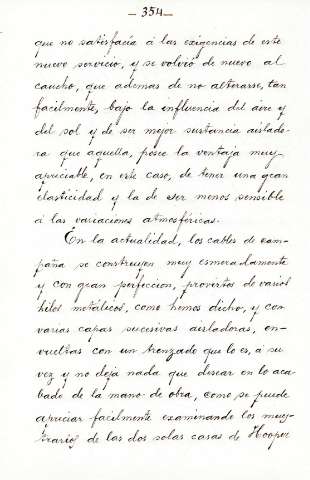 — 354 —
que no satisfacía á las exigencias de este
nuevo servicio, y se volvió de nuevo al
caucho, que ademas de no alterarse, tan
facilmente, bajo la influencia del aire y
del sol y de ser mejor sustancia aislado-
ra que aquella, posee la ventaja muy
apreciable, en este caso, de tener una gran
elasticidad y la de ser menos sensible
á las variaciones atmosféricas.
En la actualidad, los cables de cam-
paña se construyen muy esmeradamente
y con gran perfeccion, provistos de varios
hilos metálicos, como hemos dicho, y con
varias capas sucesivas aisladoras, en-
vueltas con un trenzado que lo es, á su
vez y no deja nada que desear en lo aca-
bado de la mano de obra, como se puede
apreciar facilmente examinando los mues-
trarios de las dos solas casas de Hooper